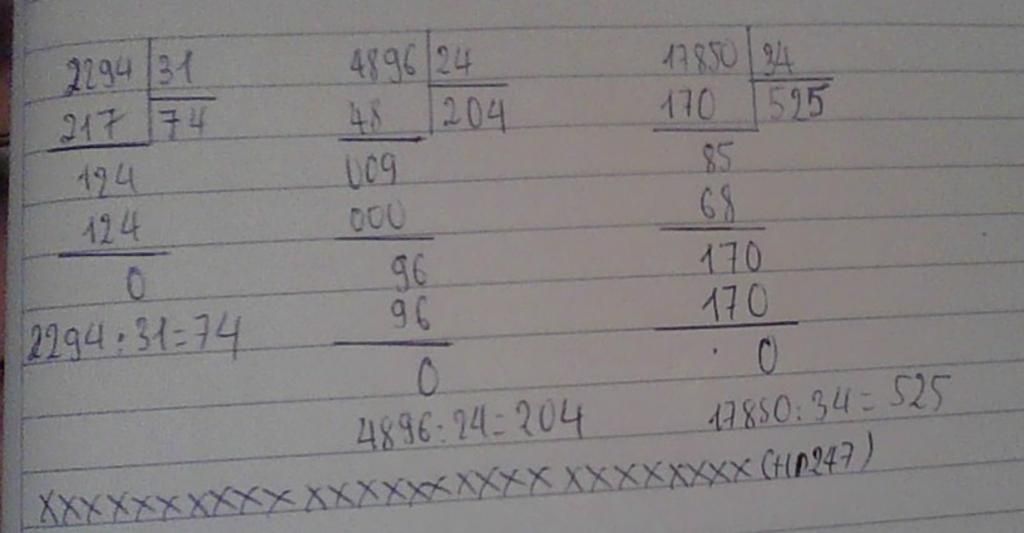 2294 31 4896 24 17850 34
217 74 48 204 170 525
124 009 85
124 000 68
0 96 170
2294:31=74 96 170
0 0
4896:24=204 17850:34=525
XXXXXXXXXXX XXXXXXXXXXX XXXXXXXX